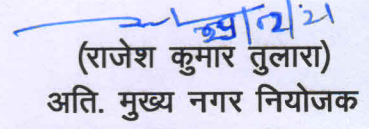 29/12/21
(राजेश कुमार तुलारा)
अति. मुख्य नगर नियोजक